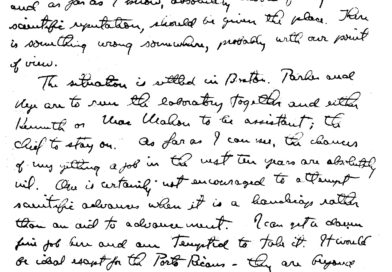 and as far as I know, absolutely
scientific reputation, should be given the place. There
is something wrong somewhere, probably with our point
of view.
The situation is settled in Boston. Parker and
Nye are to run the laboratory together and either
Kenneth or MacMahon to be assistant; the
chief to stay on. As far as I can see, the chances
of my getting a job in the next ten years are absolutely
nil. One is certainly not encouraged to attempt
scientific advances when it is a handicap rather
than an aid to advancement. I can get a damn
fine job here and am tempted to take it. It would
be ideal except for the Porto Ricans - they are beyond